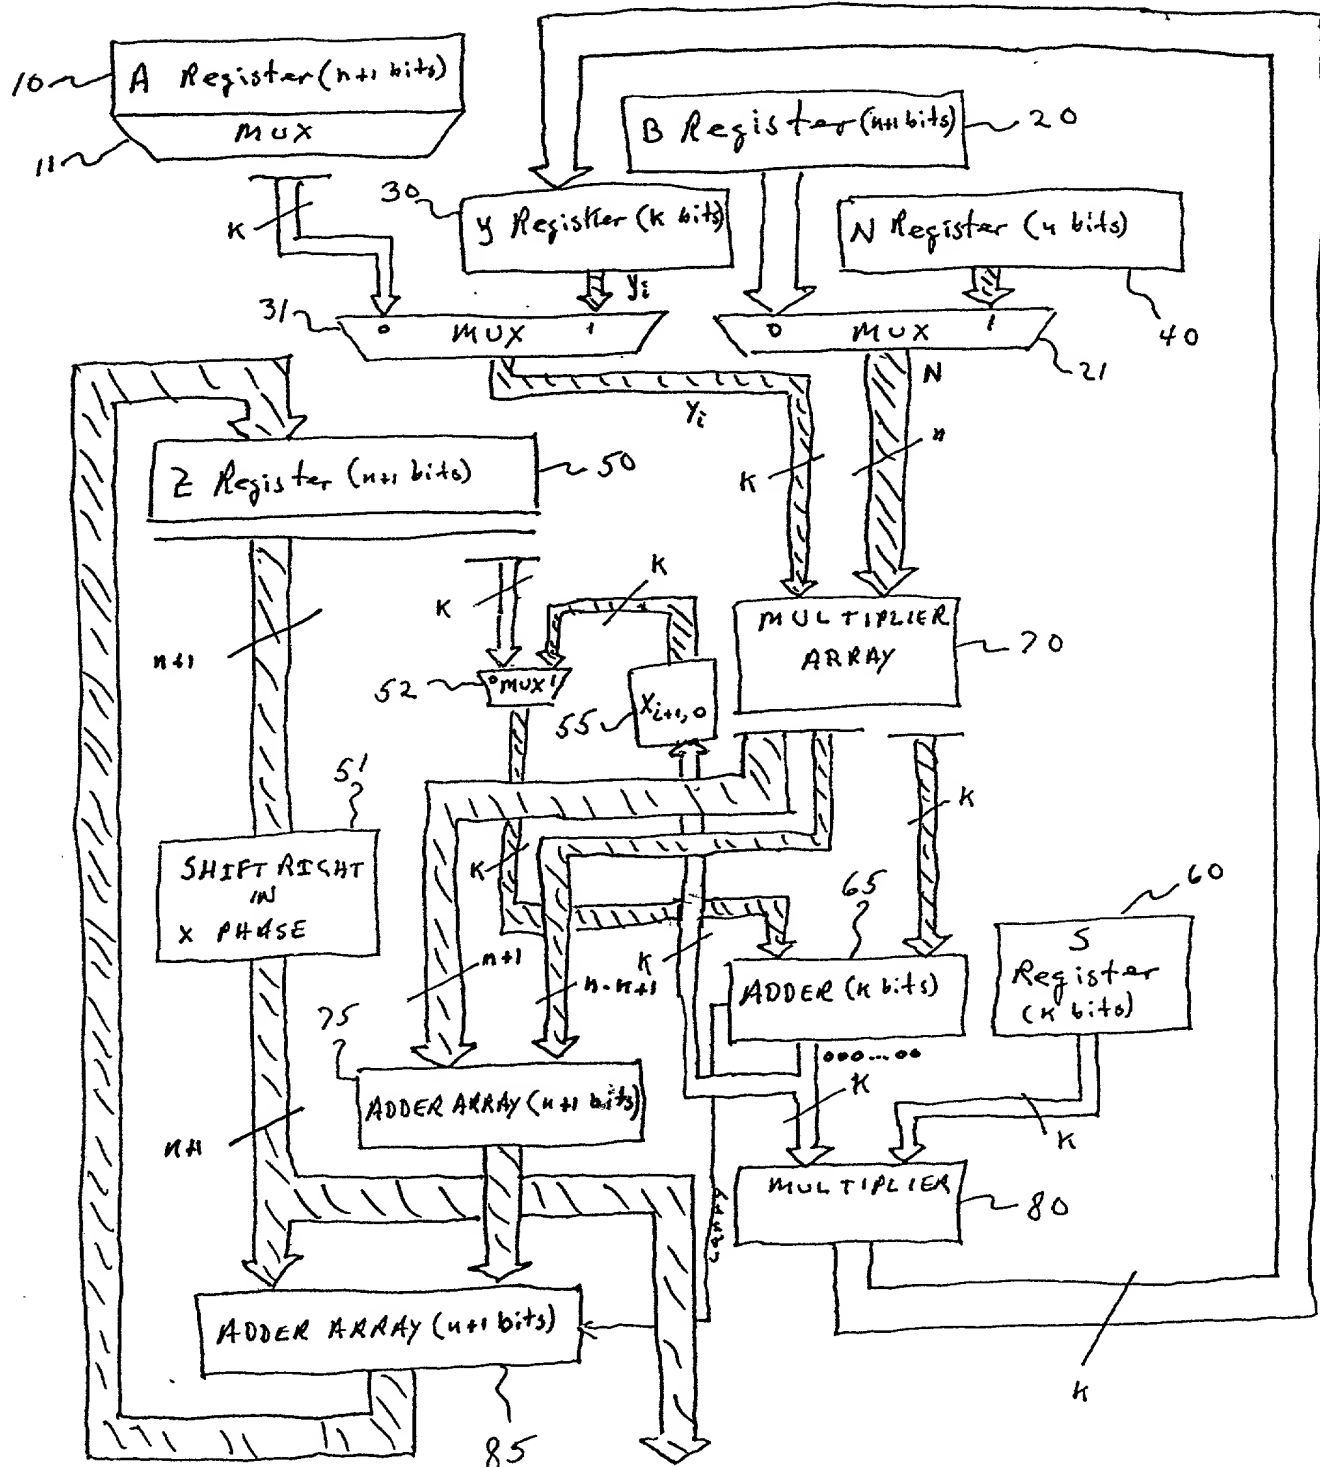 10
A Register (n+1 bits)
MUX
11
B Register (n+1 bits)
20
30
K
Y Register (k bits)
N Register (n bits)
yi
31
0 MUX 1
0 MUX 1
40
21
N
Yi
n
K
Z Register (n+1 bits)
50
K
K
MULTIPLIER
ARRAY
70
n+1
52
0 MUX 1
55
Xi+1,0
51
K
SHIFT RIGHT
IN
X PHASE
K
65
60
n+1
n-n+1
K
ADDER (K bits)
S
Register
(K bits)
75
000...00
K
ADDER ARRAY (n+1 bits)
K
n+1
MULTIPLIER
80
CARRY
ADDER ARRAY (n+1 bits)
K
85